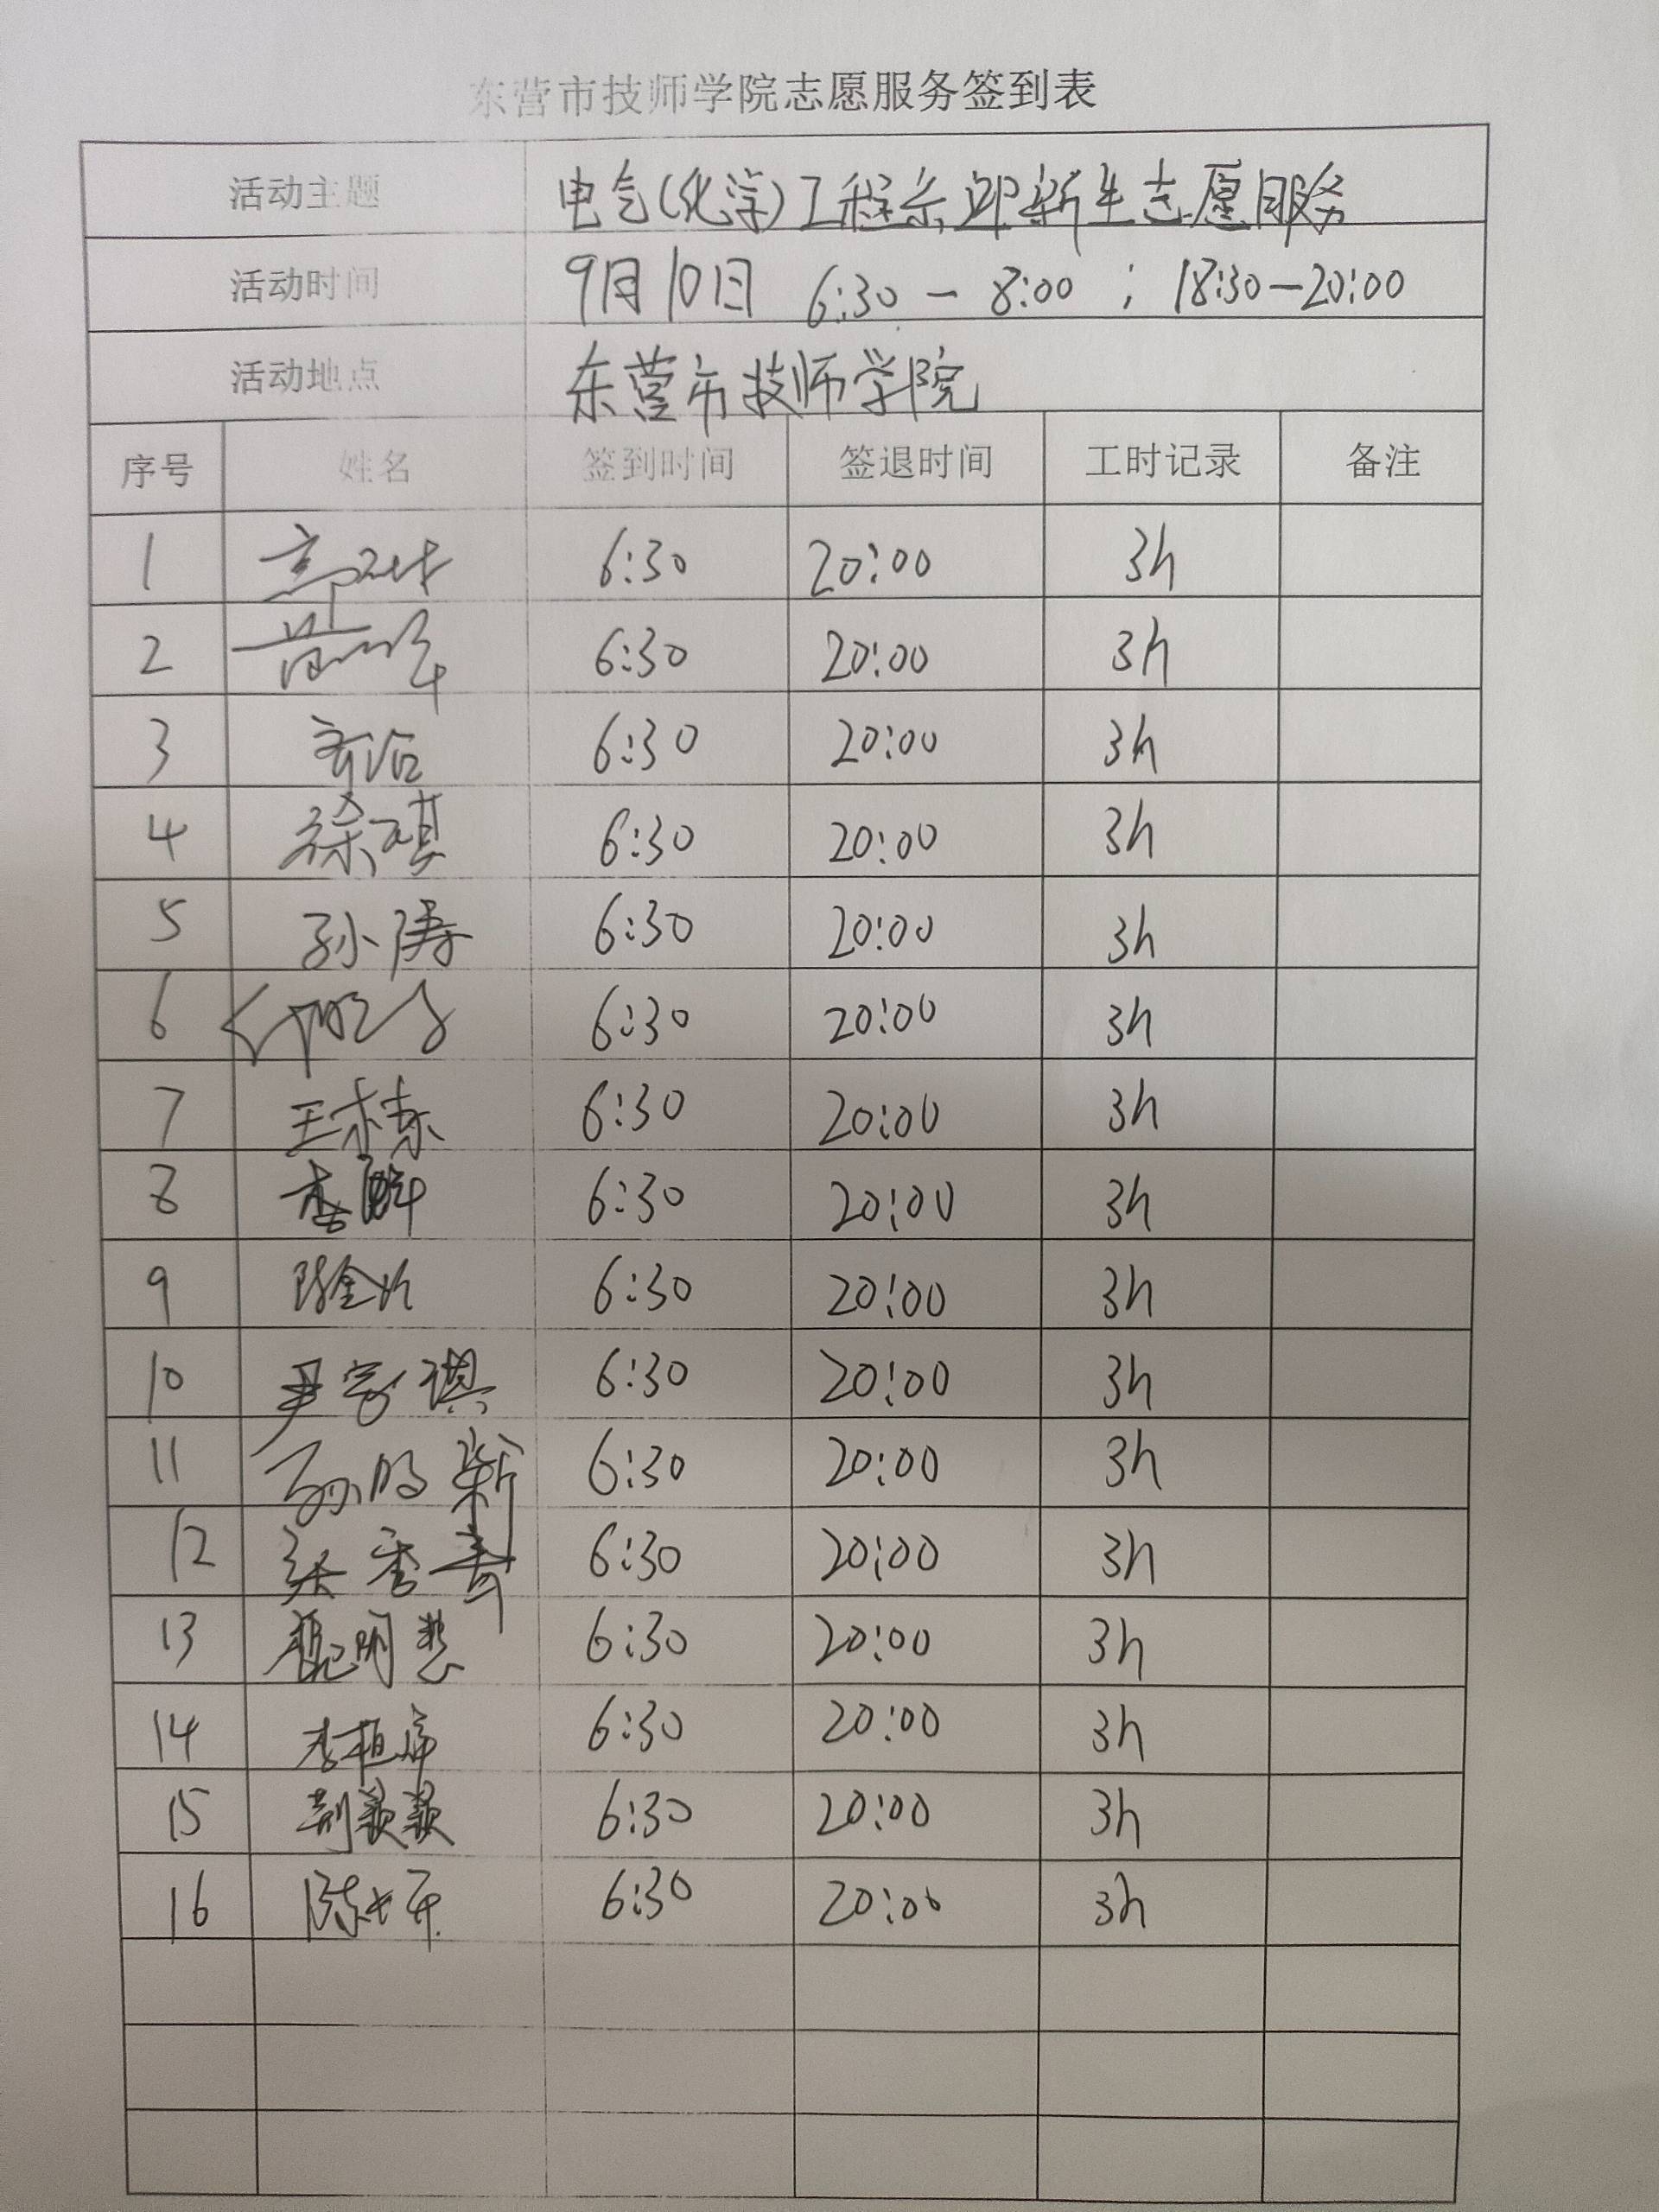 东营市技师学院志愿服务签到表
活动主题 电气(化学)工程系迎新生志愿服务
活动时间 9月10日 6:30-8:00 ; 18:30-20:00
活动地点 东营市技师学院
序号 姓名 签到时间 签退时间 工时记录 备注
1 6:30 20:00 3h
2 6:30 20:00 3h
3 6:30 20:00 3h
4 徐琪 6:30 20:00 3h
5 孙涛 6:30 20:00 3h
6 6:30 20:00 3h
7 王 栋 6:30 20:00 3h
8 李 6:30 20:00 3h
9 6:30 20:00 3h
10 尹家琪 6:30 20:00 3h
11 孙 新 6:30 20:00 3h
12 张 6:30 20:00 3h
13 明慧 6:30 20:00 3h
14 李 6:30 20:00 3h
15 6:30 20:00 3h
16 陈 6:30 20:00 3h